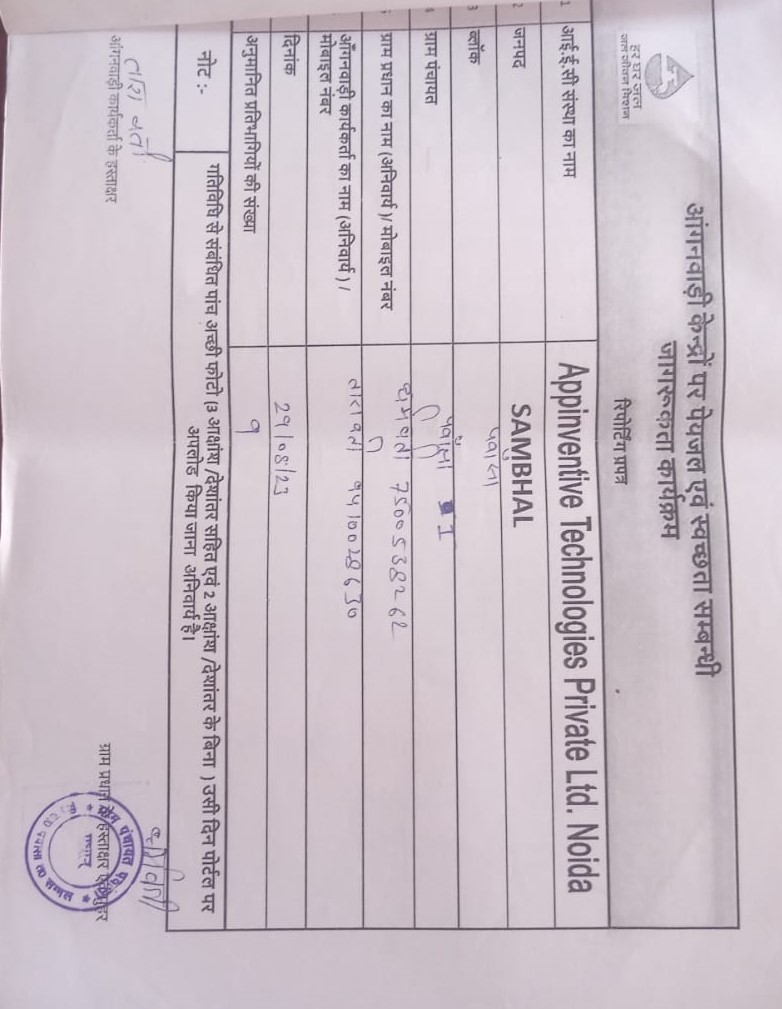 हर घर जल
जल जीवन मिशन
आंगनवाड़ी केन्द्रों पर पेयजल एवं स्वच्छता सम्बन्धी
जागरूकता कार्यक्रम
रिपोर्टिंग प्रपत्र
1 आई.ई.सी संस्था का नाम Appinventive Technologies Private Ltd. Noida
2 जनपद SAMBHAL
3 ब्लॉक पवांसा
4 ग्राम पंचायत पवांसा I
ग्राम प्रधान का नाम (अनिवार्य )/ मोबाइल नंबर 7500538262
आँगनवाड़ी कार्यकर्ता का नाम (अनिवार्य ) / तारावती
मोबाइल नंबर
दिनांक 29/08/23
अनुमानित प्रतिभागियों की संख्या 9
नोट :- गतिविधि से संबंधित पांच अच्छी फोटो (3 आक्षांश /देशांतर सहित एवं 2 आक्षांश /देशांतर के बिना ) उसी दिन पोर्टल पर
अपलोड किया जाना अनिवार्य है।
तारावती
आंगनवाड़ी कार्यकर्ता के हस्ताक्षर
ग्राम प्रधान के हस्ताक्षर एवं मुहर